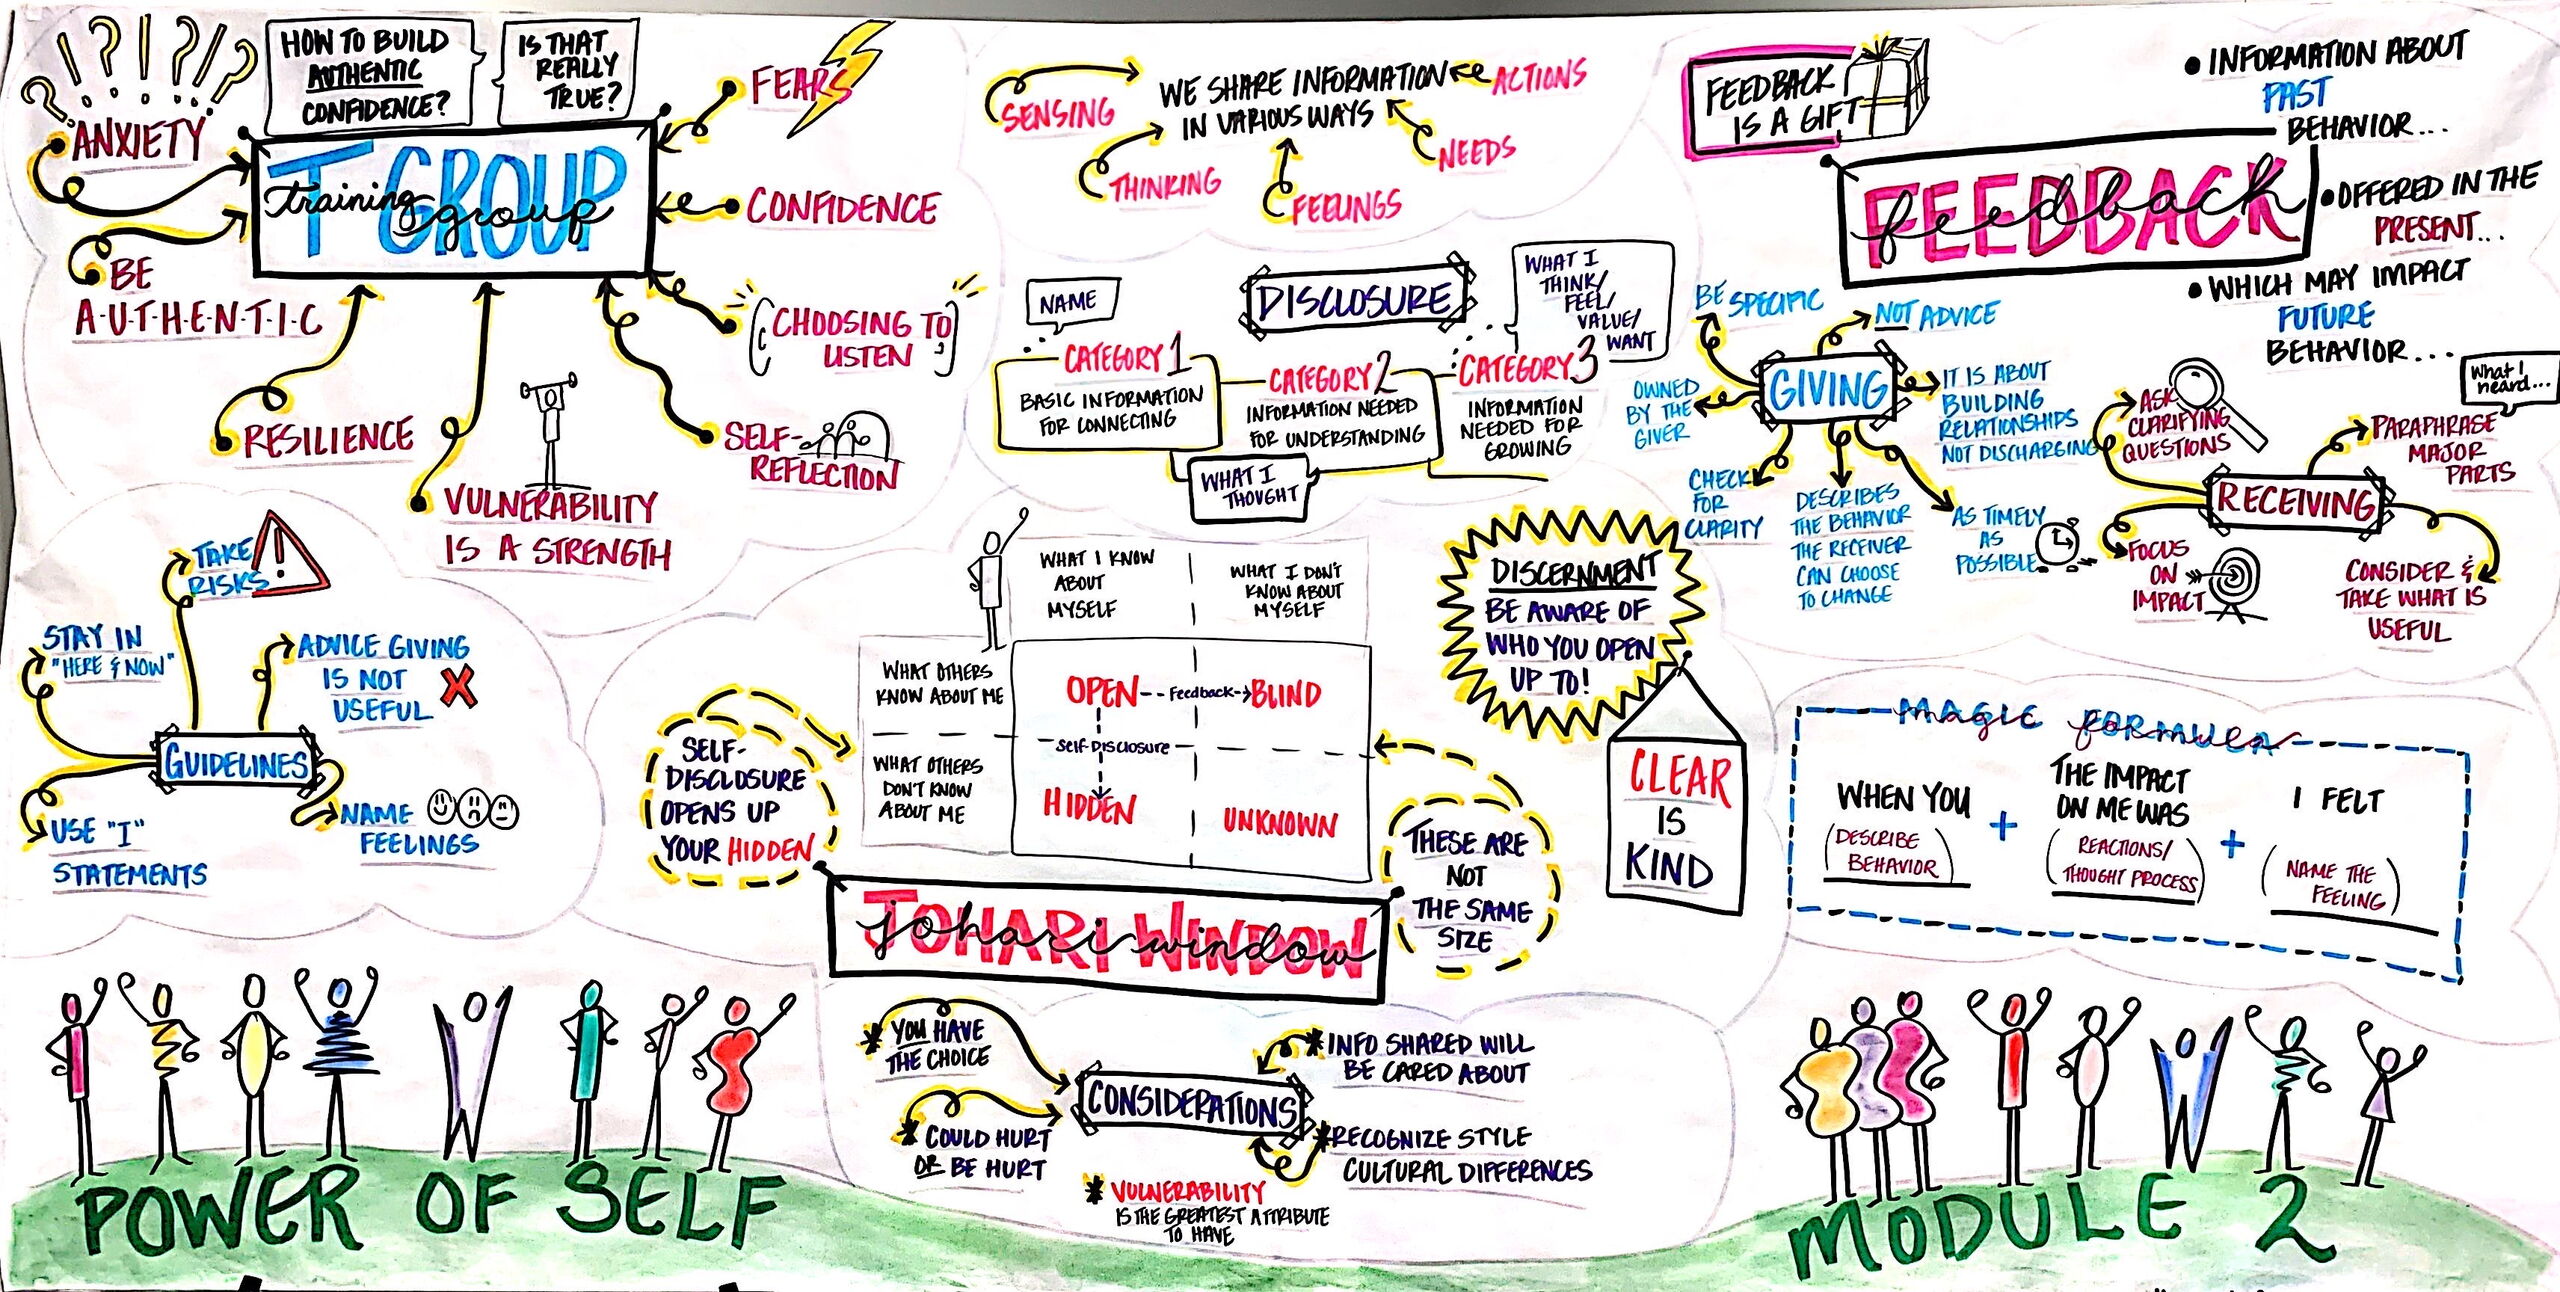 HOW TO BUILD
AUTHENTIC
CONFIDENCE?
IS THAT
REALLY
TRUE?
FEARS
ANXIETY
T GROUP
training group
CONFIDENCE
BE
A-U-T-H-E-N-T-I-C
(CHOOSING TO
LISTEN)
RESILIENCE
SELF-
REFLECTION
VULNERABILITY
IS A STRENGTH
TAKE
RISKS
!
STAY IN
"HERE & NOW"
ADVICE GIVING
IS NOT
USEFUL
GUIDELINES
USE "I"
STATEMENTS
NAME
FEELINGS
WE SHARE INFORMATION
IN VARIOUS WAYS
SENSING
THINKING
FEELINGS
NEEDS
ACTIONS
DISCLOSURE
NAME
CATEGORY 1
BASIC INFORMATION
FOR CONNECTING
CATEGORY 2
INFORMATION NEEDED
FOR UNDERSTANDING
WHAT I
THOUGHT
WHAT I
THINK/
FEEL/
VALUE/
WANT
CATEGORY 3
INFORMATION
NEEDED FOR
GROWING
WHAT I KNOW
ABOUT
MYSELF
WHAT I DON'T
KNOW ABOUT
MYSELF
WHAT OTHERS
KNOW ABOUT ME
OPEN -- Feedback -> BLIND
Self-Disclosure
WHAT OTHERS
DON'T KNOW
ABOUT ME
HIDDEN
UNKNOWN
SELF-
DISCLOSURE
OPENS UP
YOUR HIDDEN
THESE ARE
NOT
THE SAME
SIZE
JOHARI WINDOW
johari window
DISCERNMENT
BE AWARE OF
WHO YOU OPEN
UP TO!
CLEAR
IS
KIND
CONSIDERATIONS
* YOU HAVE
THE CHOICE
* COULD HURT
OR BE HURT
* INFO SHARED WILL
BE CARED ABOUT
* RECOGNIZE STYLE
CULTURAL DIFFERENCES
* VULNERABILITY
IS THE GREATEST ATTRIBUTE
TO HAVE
FEEDBACK
IS A GIFT
FEEDBACK
feedback
• INFORMATION ABOUT
PAST
BEHAVIOR...
• OFFERED IN THE
PRESENT...
• WHICH MAY IMPACT
FUTURE
BEHAVIOR...
GIVING
BE SPECIFIC
NOT ADVICE
OWNED
BY THE
GIVER
IT IS ABOUT
BUILDING
RELATIONSHIPS
NOT DISCHARGING
CHECK
FOR
CLARITY
DESCRIBES
THE BEHAVIOR
THE RECEIVER
CAN CHOOSE
TO CHANGE
AS TIMELY
AS
POSSIBLE
RECEIVING
ASK
CLARIFYING
QUESTIONS
What I
heard...
PARAPHRASE
MAJOR
PARTS
FOCUS
ON
IMPACT
CONSIDER &
TAKE WHAT IS
USEFUL
MAGIC FORMULA
WHEN YOU
(DESCRIBE
BEHAVIOR)
+
THE IMPACT
ON ME WAS
(REACTIONS/
THOUGHT PROCESS)
+
I FELT
(NAME THE
FEELING)
POWER OF SELF
MODULE 2